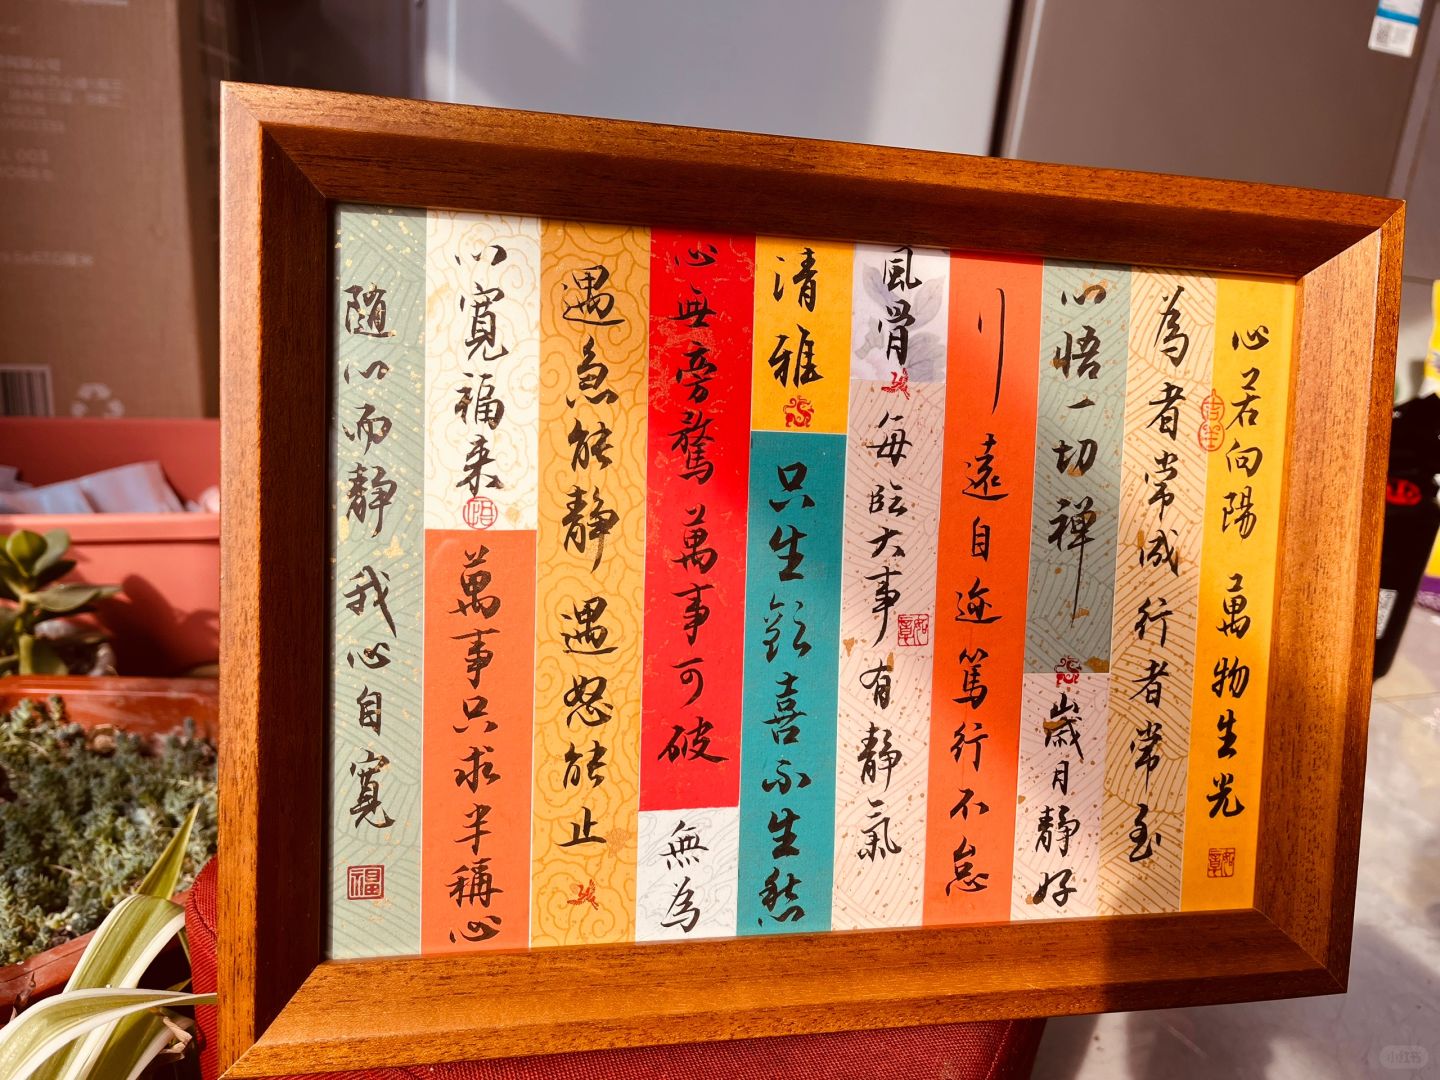 心若向陽 萬物生光
為者常成 行者常至
心悟一切禪
歲月靜好
行遠自迩 篤行不怠
風骨
每臨大事有靜氣
清雅
只生歡喜不生愁
心無旁騖萬事可破
無為
遇急能靜 遇怒能止
心寬福来
萬事只求半稱心
隨心而靜 我心自寬
福
小红书